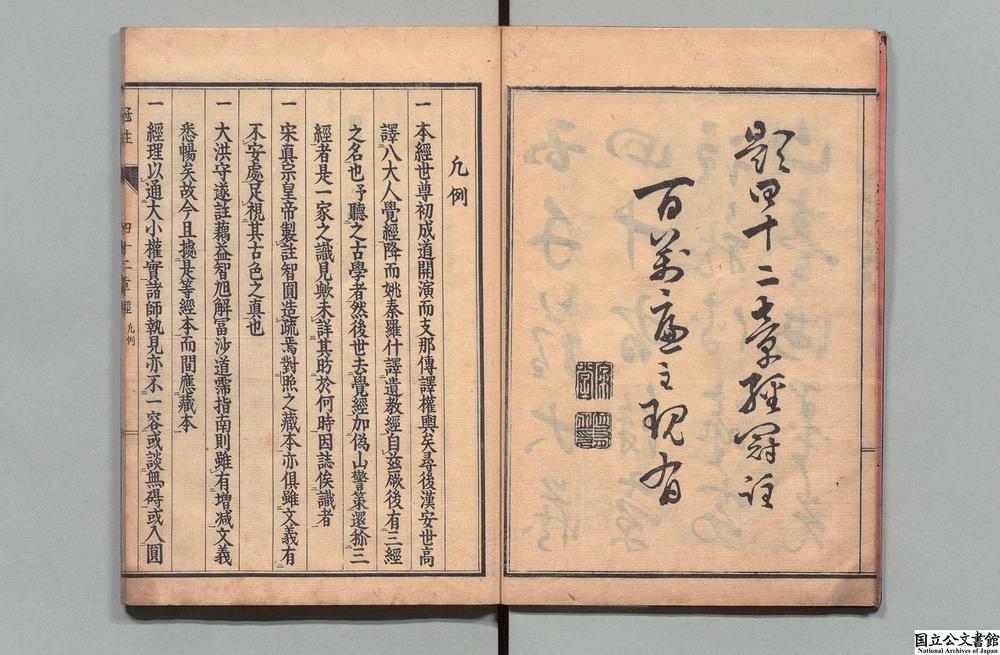 題四十二章經冠註
百萬
主現有
凡例
一 本經世尊初成道開演而支那傳譯權輿矣尋後漢安世高
譯八大人覺經降而姚秦羅什譯遺教經自茲厥後有三經
之名也予聽之古學者然後世去覺經加溈山警策還撿三
經者是一家之識見歟未詳其昉於何時因誌俟識者
一 宋真宗皇帝製註智圓造疏焉對照之藏本亦俱雖文義有
不安處足視其古色之真也
一 大洪守遂註藕益智旭解冨沙道霈指南則雖有增減文義
悉暢矣故今且據是等經本而間應藏本
一 經理以通大小權實諸師執見亦不一容或談無碍或入圓
冠註 四十二章經 凡例
国立公文書館
National Archives of Japan